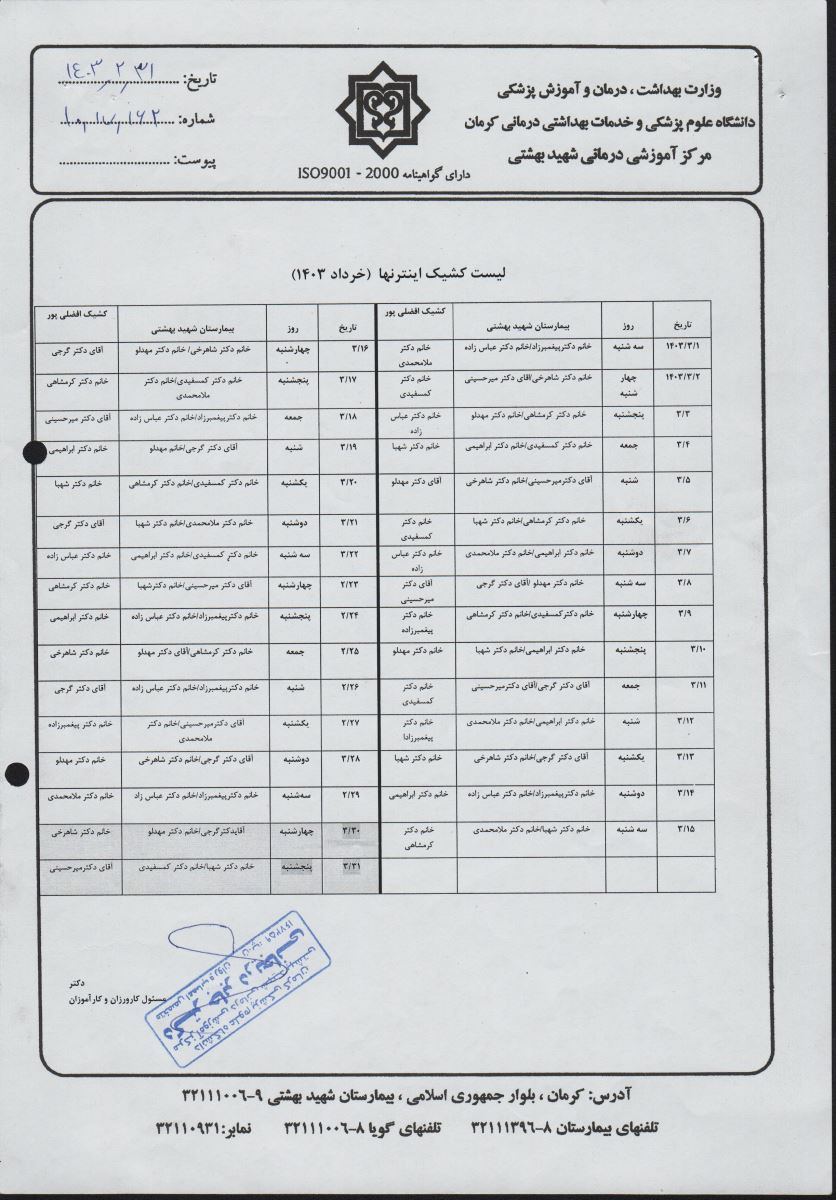 وزارت بهداشت ، درمان و آموزش پزشکی
دانشگاه علوم پزشکی و خدمات بهداشتی درمانی کرمان
مرکز آموزشی درمانی شهید بهشتی
دارای گواهینامه ISO9001 - 2000
تاریخ: ۱۴۰۳،۲،۳۱
شماره:
پیوست:
لیست کشیک اینترنها (خرداد ۱۴۰۳)
تاریخ روز بیمارستان شهید بهشتی کشیک افضلی پور تاریخ روز بیمارستان شهید بهشتی کشیک افضلی پور
۱۴۰۳/۳/۱ سه شنبه خانم دکترپیغمبرزاد/خانم دکتر عباس زاده خانم دکتر ملامحمدی ۳/۱۶ چهارشنبه خانم دکتر شاهرخی/خانم دکتر مهدلو آقای دکتر گرجی
۱۴۰۳/۳/۲ چهار شنبه خانم دکتر شاهرخی/آقای دکتر میرحسینی خانم دکتر کمسفیدی ۳/۱۷ پنجشنبه خانم دکتر کمسفیدی/خانم دکتر ملامحمدی خانم دکتر کرمشاهی
۳/۳ پنجشنبه خانم دکتر کرمشاهی/خانم دکتر مهدلو خانم دکتر عباس زاده ۳/۱۸ جمعه خانم دکترپیغمبرزاد/خانم دکتر عباس زاده آقای دکتر میرحسینی
۳/۴ جمعه خانم دکتر کمسفیدی/خانم دکتر ابراهیمی خانم دکتر شهبا ۳/۱۹ شنبه آقای دکتر گرجی/خانم مهدلو خانم دکتر ابراهیمی
۳/۵ شنبه آقای دکترمیرحسینی/خانم دکتر شاهرخی آقای دکتر مهدلو ۳/۲۰ یکشنبه خانم دکتر کمسفیدی/خانم دکتر کرمشاهی خانم دکتر شهبا
۳/۶ یکشنبه خانم دکتر کرمشاهی/خانم دکتر شهبا خانم دکتر کمسفیدی ۳/۲۱ دوشنبه خانم دکتر ملامحمدی/خانم دکتر شهبا آقای دکتر گرجی
۳/۷ دوشنبه خانم دکتر ابراهیمی/خانم دکتر ملامحمدی خانم دکتر عباس زاده ۳/۲۲ سه شنبه خانم دکتر کمسفیدی/خانم دکتر ابراهیمی خانم دکتر عباس زاده
۳/۸ سه شنبه خانم دکتر مهدلو /آقای دکتر گرجی آقای دکتر میرحسینی ۲/۲۳ چهارشنبه آقای دکتر میرحسینی/خانم دکترشهبا خانم دکتر کرمشاهی
۳/۹ چهارشنبه خانم دکترکمسفیدی/خانم دکتر کرمشاهی خانم دکتر پیغمبرزاده ۲/۲۴ پنجشنبه خانم دکترپیغمبرزاد/خانم دکتر عباس زاده خانم دکتر ابراهیمی
۳/۱۰ پنجشنبه خانم دکتر ابراهیمی/خانم دکتر شهبا خانم دکتر مهدلو ۲/۲۵ جمعه خانم دکتر کرمشاهی/آقای دکتر مهدلو خانم دکتر شاهرخی
۳/۱۱ جمعه آقای دکتر گرجی/آقای دکترمیرحسینی خانم دکتر کمسفیدی ۲/۲۶ شنبه خانم دکترپیغمبرزاد/خانم دکتر عباس زاده آقای دکتر گرجی
۳/۱۲ شنبه خانم دکتر ابراهیمی/خانم دکتر ملامحمدی خانم دکتر پیغمبرزادا ۲/۲۷ یکشنبه آقای دکترمیرحسینی/خانم دکتر ملامحمدی خانم دکتر پیغمبرزاده
۳/۱۳ یکشنبه آقای دکتر گرجی/خانم دکتر شاهرخی خانم دکتر شهبا ۳/۲۸ دوشنبه آقای دکتر گرجی/خانم دکتر شاهرخی خانم دکتر مهدلو
۳/۱۴ دوشنبه خانم دکترپیغمبرزاد/خانم دکتر عباس زاده خانم دکتر ابراهیمی ۲/۲۹ سه‌شنبه خانم دکترپیغمبرزاد/خانم دکتر عباس زاد خانم دکتر ملامحمدی
۳/۱۵ سه شنبه خانم دکتر شهبا/خانم دکتر ملامحمدی خانم دکتر کرمشاهی ۳/۳۰ چهارشنبه آقایدکترگرجی/خانم دکتر مهدلو خانم دکتر شاهرخی
۳/۳۱ پنجشنبه خانم دکتر شهبا/خانم دکتر کمسفیدی آقای دکترمیرحسینی
دکتر
مسئول کارورزان و کارآموزان
آدرس: کرمان ، بلوار جمهوری اسلامی ، بیمارستان شهید بهشتی ۹-۳۲۱۱۱۰۰۶
تلفنهای بیمارستان ۸-۳۲۱۱۱۳۹۶ تلفنهای گویا ۸-۳۲۱۱۱۰۰۶ نمابر:۳۲۱۱۰۹۳۱